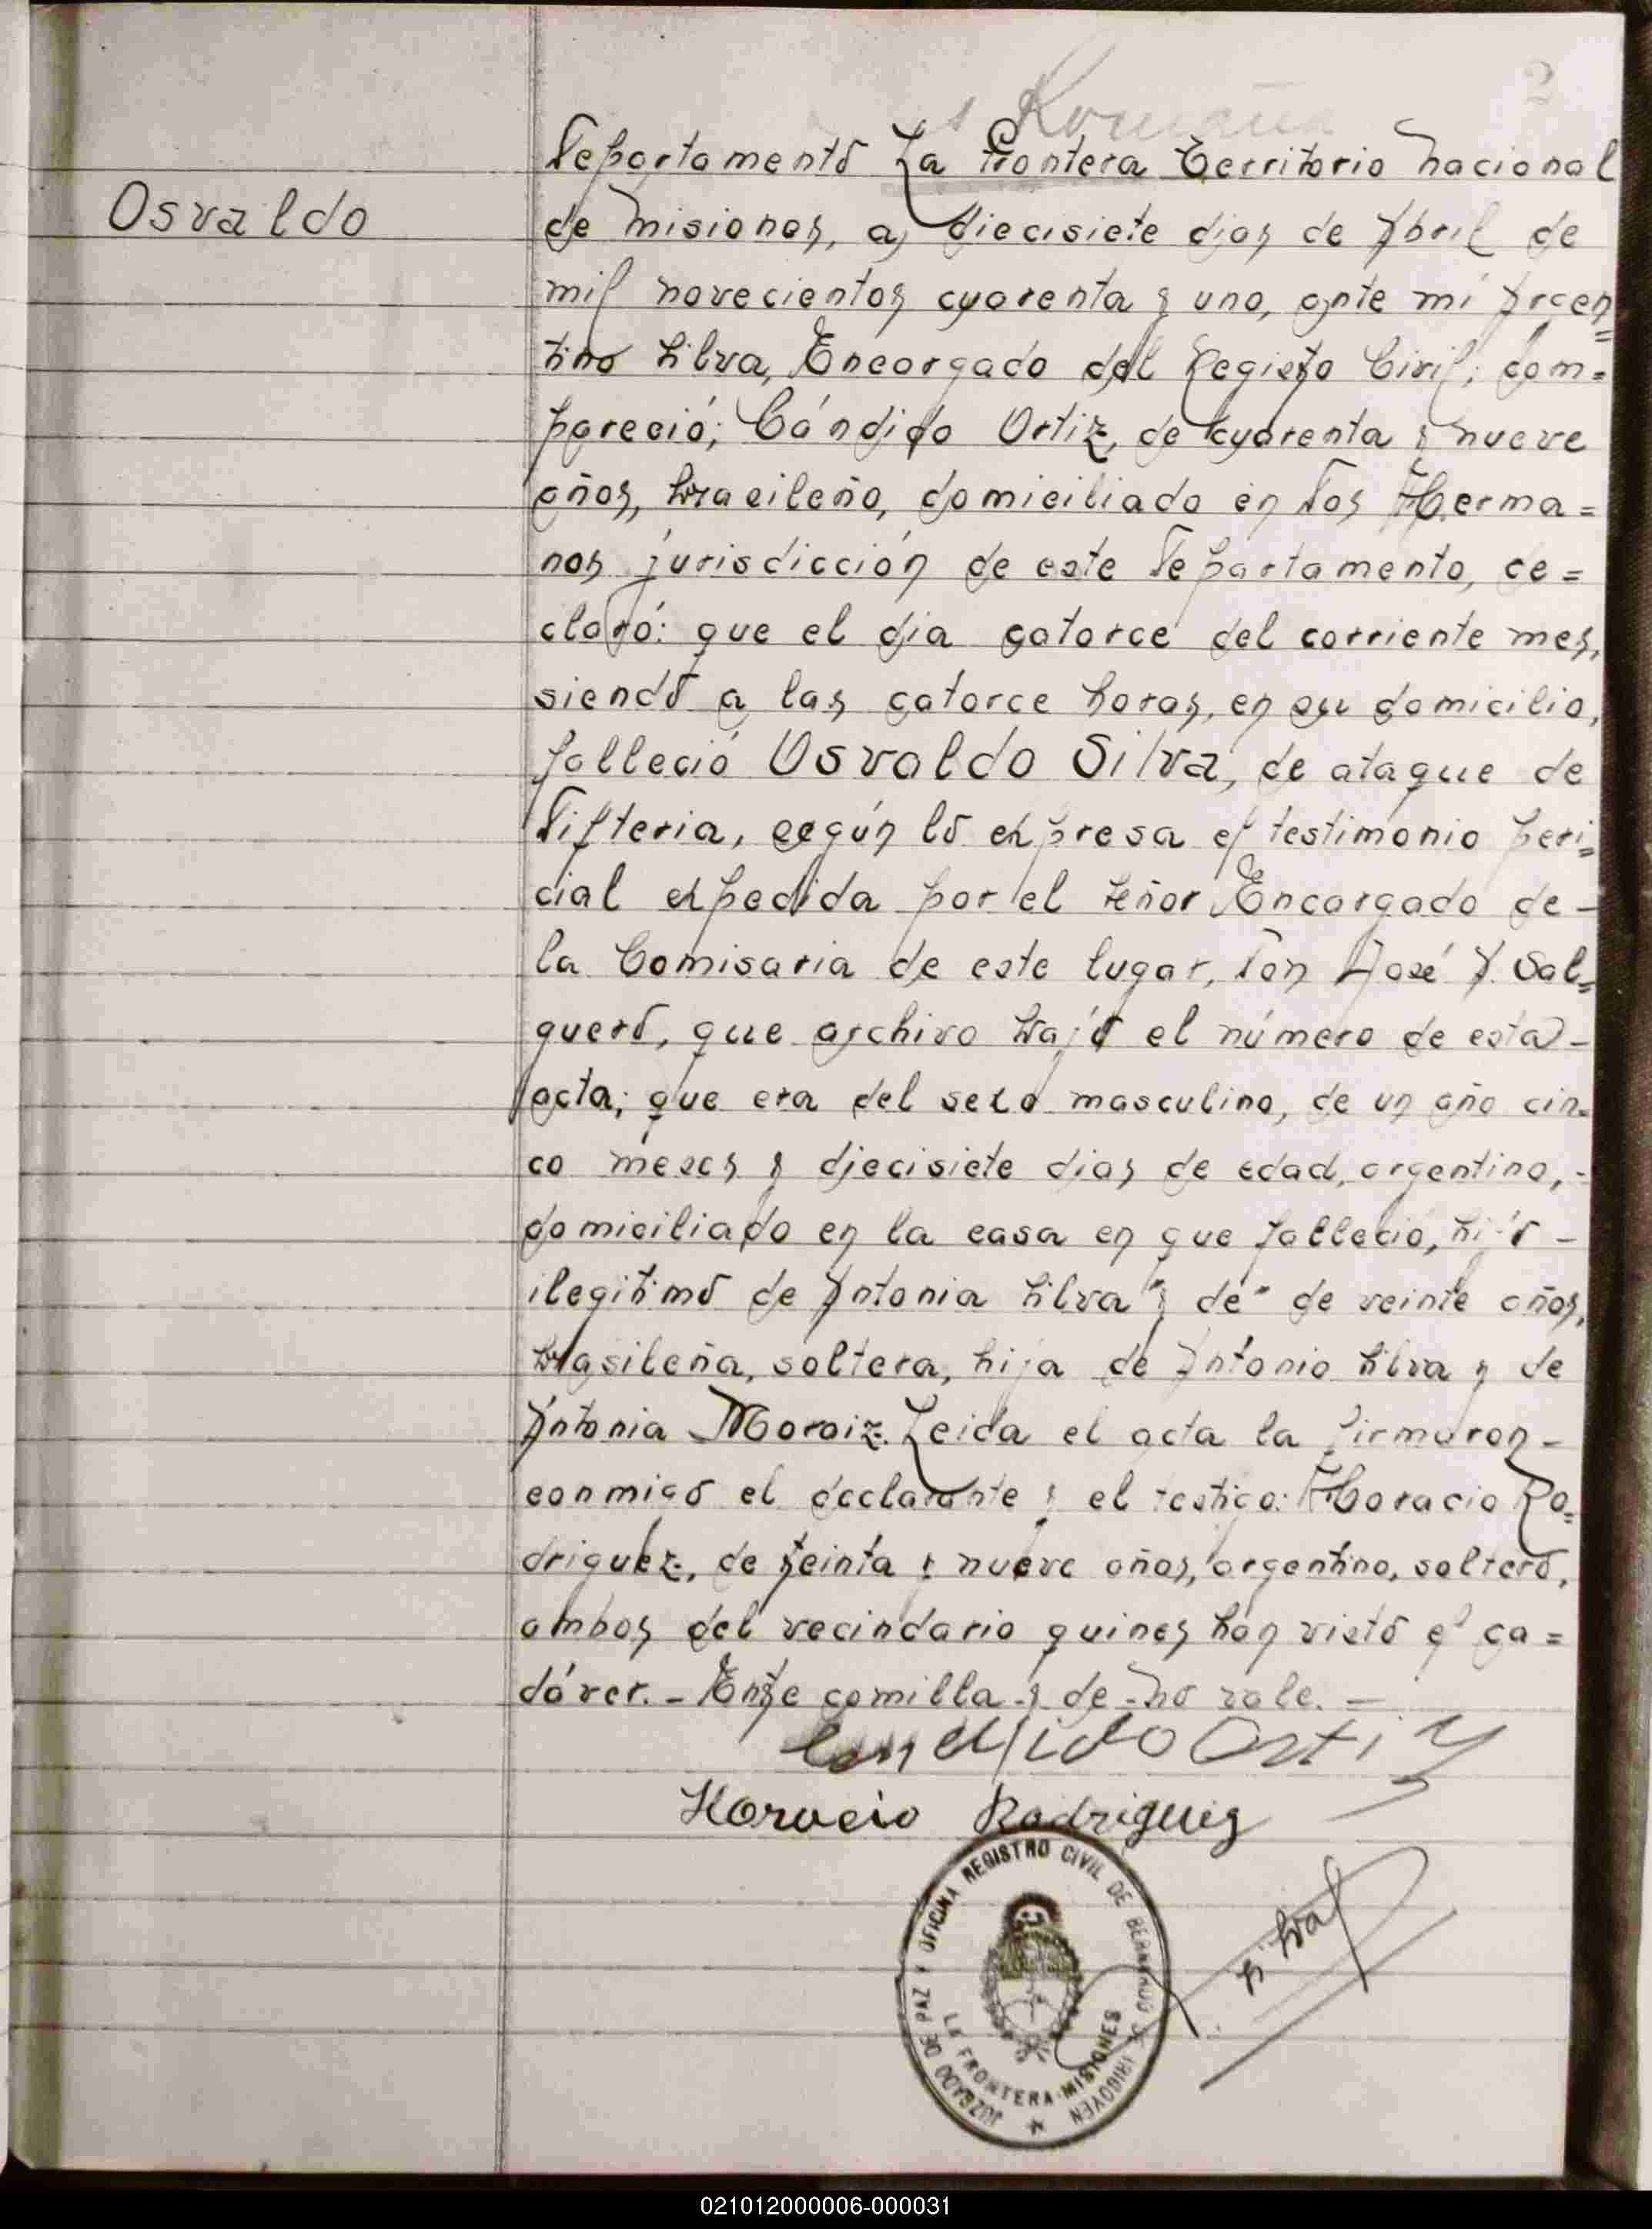 2
Romaña
Departamento La Frontera Territorio Nacional
Osvaldo
de Misiones, a diecisiete dias de Abril de
mil novecientos cuarenta y uno, ante mi Argen=
tino Silva, Encargado del Registro Civil; com=
pareció; Cándido Ortiz, de cuarenta y nueve
años, brasileño, domiciliado en Dos Herma=
nos jurisdicción de este Departamento, de=
claró: que el dia catorce del corriente mes,
siendo a las catorce horas, en su domicilio,
falleció Osvaldo Silva, de ataque de
Difteria, según lo expresa el testimonio peri=
cial expedida por el Señor Encargado de-
la Comisaria de este lugar, Don José A. Sal=
guero, que archivo bajo el número de esta-
acta; que era del sexo masculino, de un año cin=
co meses y diecisiete dias de edad, argentino,-
domiciliado en la casa en que falleció, hijo-
ilegitimo de Antonia Silva "y de" de veinte años,
brasileña, soltera, hija de Antonio Silva y de
Antonia Moraiz. Leida el acta la firmaron-
conmigo el declarante y el testigo: Horacio Ro=
driguez, de treinta y nueve años, argentino, soltero,
ambos del vecindario quines han visto el ca=
dáver.- Entre comilla-y de-no vale.=
Candido Ortiz
Horacio Rodriguez
Silva
JUZGADO DE PAZ Y OFICINA REGISTRO CIVIL DE BERNARDO DE IRIGOYEN
LA FRONTERA-MISIONES
021012000006-000031